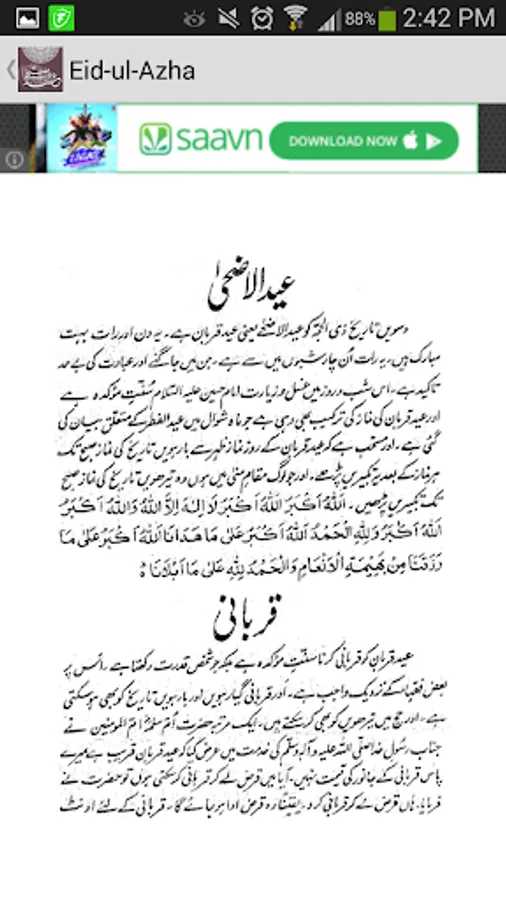 88% 2:42 PM
Eid-ul-Azha
saavn DOWNLOAD NOW
عید الاضحیٰ
دسویں تاریخ ذی الحجہ کو عید الاضحٰے یعنی عید قربان ہے۔ یہ دن اور رات بہت
مبارک ہیں۔ یہ رات اُن چار شبوں میں سے ہے۔ جن میں جاگنے اور عبادت کی بے حد
تاکید ہے۔ اس شب و روز میں غسل و زیارت امام حسین علیہ السلام سُنّتِ مؤکدہ ہے
اور عید قربان کی نماز کی ترکیب بھی وہی ہے جو ماہ شوال میں عید الفطر کے متعلق بیان کی
گئی ہے۔ اور مستحب ہے کہ عید قربان کے روز نماز ظہر سے بارہویں تاریخ کی نماز صبح تک
ہر نماز کے بعد یہ تکبیریں پڑھے۔ اور جو لوگ مقام منٰی میں ہوں وہ تیرھویں تاریخ کی نماز صبح
تک یہ تکبیریں پڑھیں۔ اَللّٰهُ اَكْبَرُ اَللّٰهُ اَكْبَرُ لَا اِلٰهَ اِلَّا اللّٰهُ وَاللّٰهُ اَكْبَرُ
اَللّٰهُ اَكْبَرُ وَلِلّٰهِ الْحَمْدُ اَللّٰهُ اَكْبَرُ عَلٰى مَا هَدَانَا اَللّٰهُ اَكْبَرُ عَلٰى مَا
رَزَقَنَا مِنْ بَهِيْمَةِ الْاَنْعَامِ وَالْحَمْدُ لِلّٰهِ عَلٰى مَا اَبْلَانَا ہ
قربانی
عید قربان کو قربانی کرنا سنّتِ مؤکدہ ہے بلکہ جو شخص قدرت رکھتا ہے۔ اس پر
بعض فقہا کے نزدیک واجب ہے۔ اور قربانی گیارہویں اور بارہویں تاریخ کو بھی ہو سکتی
ہے۔ اور حج میں تیرھویں کو بھی کر سکتے ہیں۔ ایک مرتبہ حضرت اُم سلمہؓ ام المومنین نے
جناب رسول خدا صلی اللہ علیہ و آلہ وسلم کی خدمت میں عرض کیا کہ عید قربان قریب ہے میرے
پاس قربانی کے جانور کی قیمت نہیں۔ آیا میں قرض لے کر قربانی کر سکتی ہوں تو حضرت نے
فرمایا۔ ہاں قرض لے کر قربانی کرو۔ یقیناً وہ قرض ادا ہو جائے گا۔ قربانی کے لئے اونٹ